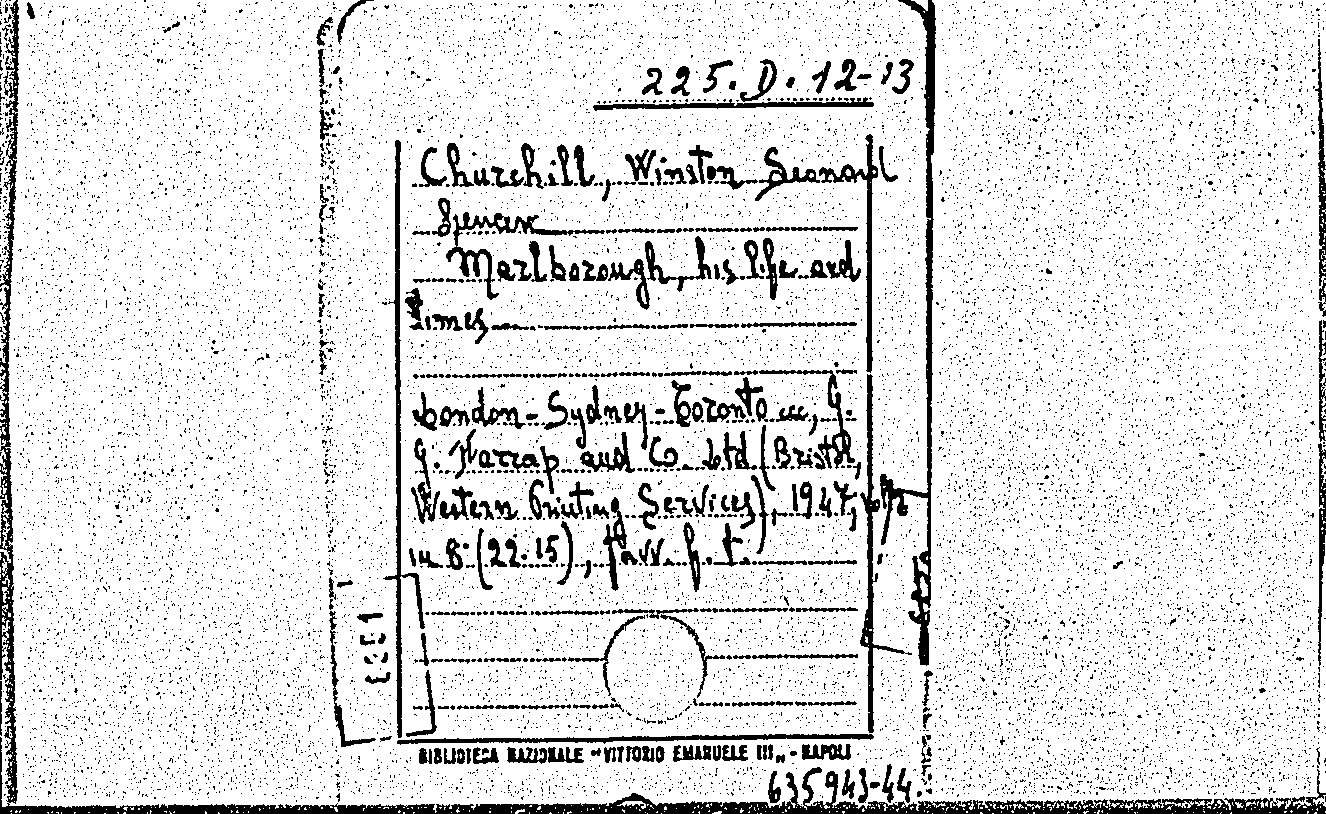 225.D.12-13
Churchill, Winston Leonard
Spencer
Marlborough, his life and
times
London-Sydney-Toronto ecc, G.
G. Harrap and Co. Ltd (Bristol,
Western Printing Services), 1947,
in 8° (22.15), tavv. f. t.
BIBLIOTECA NAZIONALE "VITTORIO EMANUELE III„ - NAPOLI
635943-44.